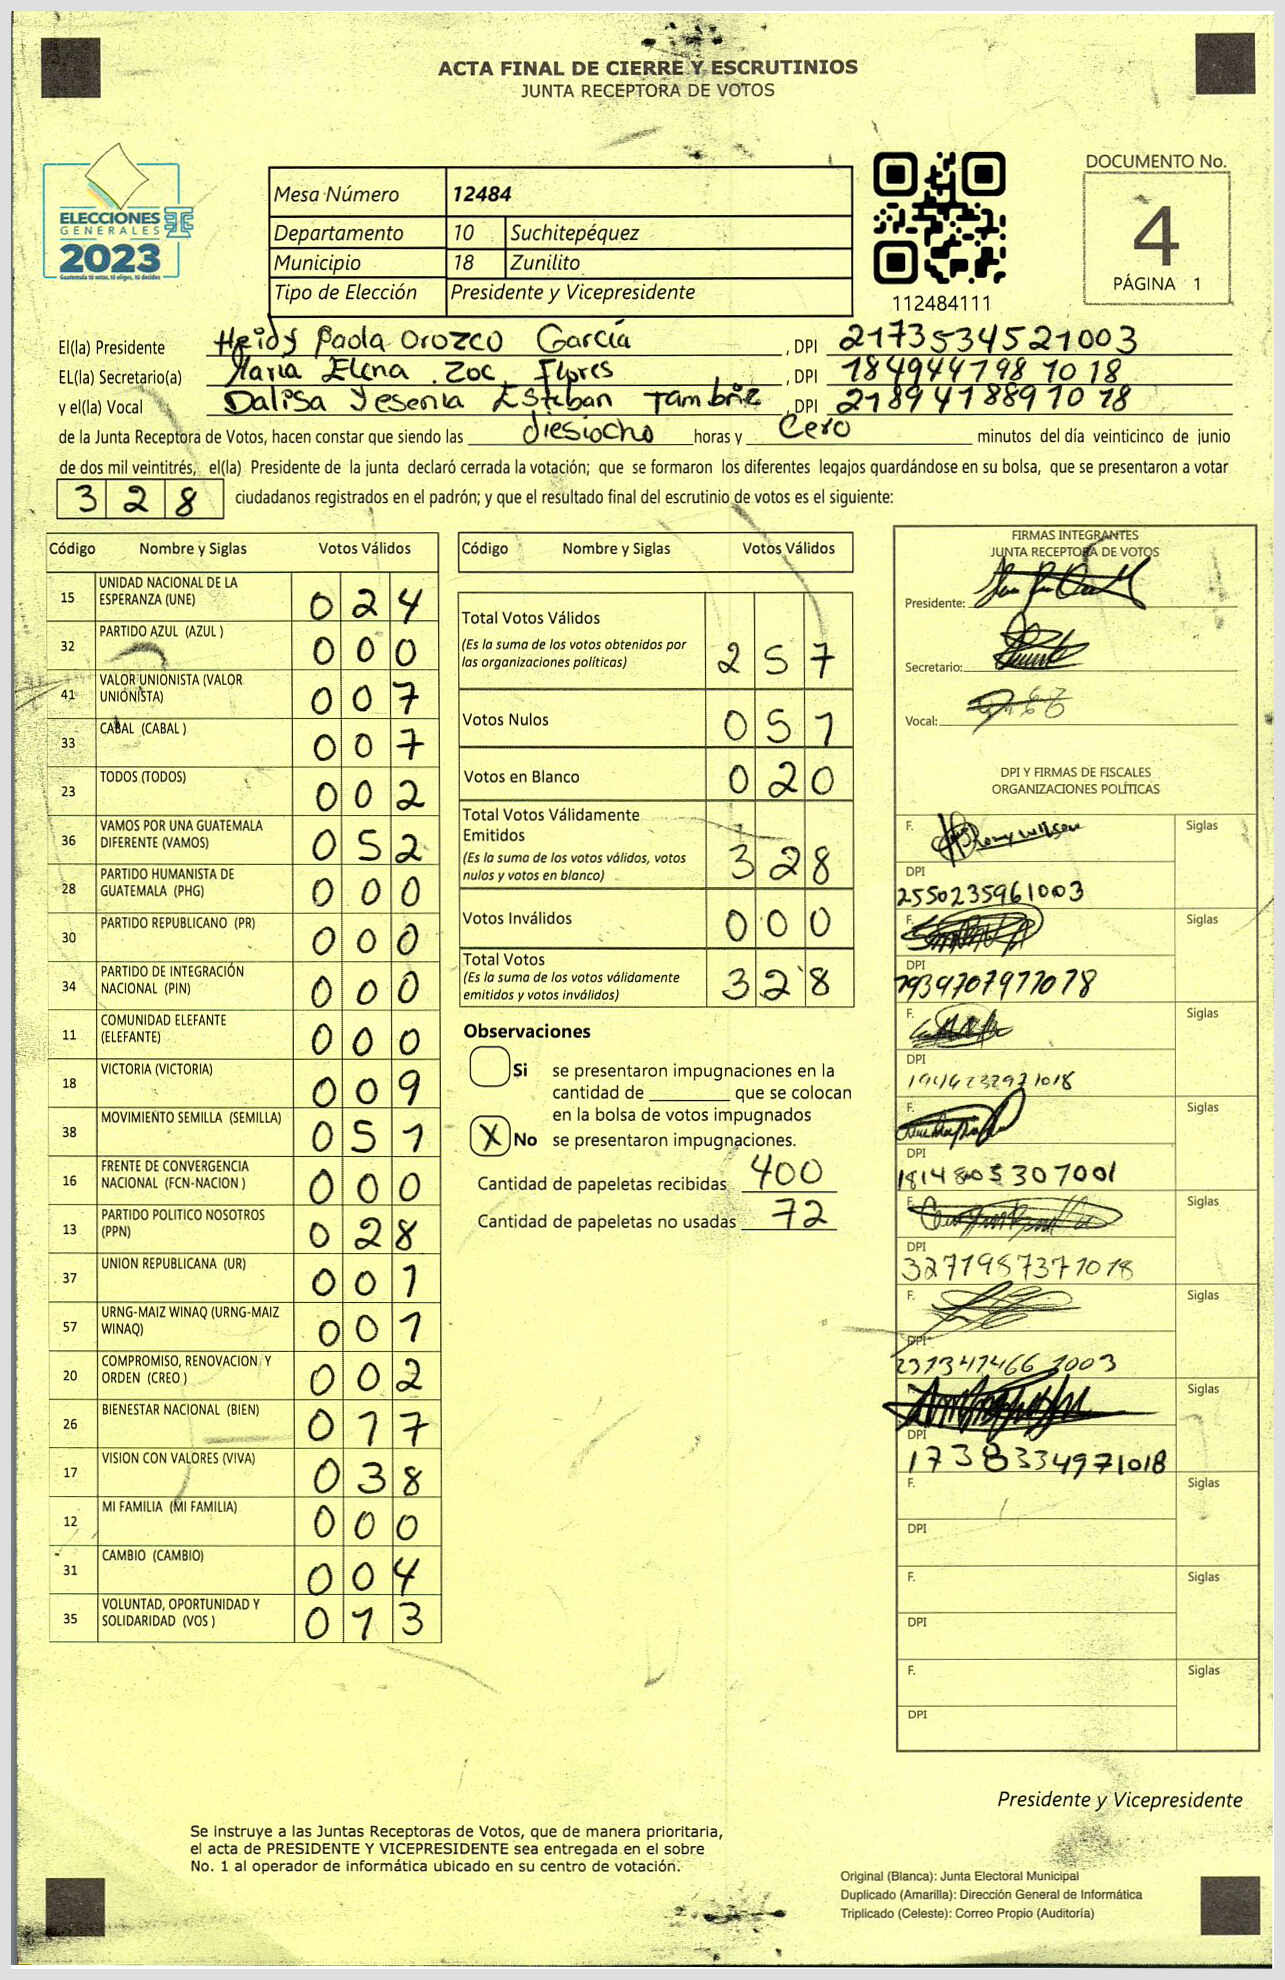 ACTA FINAL DE CIERRE Y ESCRUTINIOS
JUNTA RECEPTORA DE VOTOS
ELECCIONES
GENERALES
2023
Mesa Número 12484
Departamento 10 Suchitepéquez
Municipio 18 Zunilito
Tipo de Elección Presidente y Vicepresidente
112484111
DOCUMENTO No.
4
PÁGINA 1
El(la) Presidente Heidy Paola Orozco García , DPI 2173534521003
EL(la) Secretario(a) María Elena Zoc Flores , DPI 1849447981018
y el(la) Vocal Dalisa Yesenia Esteban Tambriz , DPI 2189418891018
de la Junta Receptora de Votos, hacen constar que siendo las diesiocho horas y Cero minutos del día veinticinco de junio
de dos mil veintitrés, el(la) Presidente de la junta declaró cerrada la votación; que se formaron los diferentes legajos guardándose en su bolsa, que se presentaron a votar
328 ciudadanos registrados en el padrón; y que el resultado final del escrutinio de votos es el siguiente:
Código Nombre y Siglas Votos Válidos
15 UNIDAD NACIONAL DE LA
ESPERANZA (UNE) 024
32 PARTIDO AZUL (AZUL ) 000
41 VALOR UNIONISTA (VALOR
UNIONISTA) 007
33 CABAL (CABAL ) 007
23 TODOS (TODOS) 002
36 VAMOS POR UNA GUATEMALA
DIFERENTE (VAMOS) 052
28 PARTIDO HUMANISTA DE
GUATEMALA (PHG) 000
30 PARTIDO REPUBLICANO (PR) 000
34 PARTIDO DE INTEGRACIÓN
NACIONAL (PIN) 000
11 COMUNIDAD ELEFANTE
(ELEFANTE) 000
18 VICTORIA (VICTORIA) 009
38 MOVIMIENTO SEMILLA (SEMILLA) 051
16 FRENTE DE CONVERGENCIA
NACIONAL (FCN-NACION ) 000
13 PARTIDO POLITICO NOSOTROS
(PPN) 028
37 UNION REPUBLICANA (UR) 001
57 URNG-MAIZ WINAQ (URNG-MAIZ
WINAQ) 001
20 COMPROMISO, RENOVACION Y
ORDEN (CREO ) 002
26 BIENESTAR NACIONAL (BIEN) 017
17 VISION CON VALORES (VIVA) 038
12 MI FAMILIA (MI FAMILIA) 000
31 CAMBIO (CAMBIO) 004
35 VOLUNTAD, OPORTUNIDAD Y
SOLIDARIDAD (VOS ) 013
Código Nombre y Siglas Votos Válidos
Total Votos Válidos
(Es la suma de los votos obtenidos por
las organizaciones políticas) 257
Votos Nulos 051
Votos en Blanco 020
Total Votos Válidamente
Emitidos
(Es la suma de los votos válidos, votos
nulos y votos en blanco) 328
Votos Inválidos 000
Total Votos
(Es la suma de los votos válidamente
emitidos y votos inválidos) 328
Observaciones
Si se presentaron impugnaciones en la
cantidad de ________ que se colocan
en la bolsa de votos impugnados
X No se presentaron impugnaciones.
Cantidad de papeletas recibidas 400
Cantidad de papeletas no usadas 72
FIRMAS INTEGRANTES
JUNTA RECEPTORA DE VOTOS
Presidente:
Secretario:
Vocal:
DPI Y FIRMAS DE FISCALES
ORGANIZACIONES POLÍTICAS
F. Siglas
DPI
2550235961003
F. Siglas
DPI
F. Siglas
DPI
F. Siglas
DPI
1814805307001
F. Siglas
DPI
3271987371018
F. Siglas
DPI
F. Siglas
DPI
1738334971018
F. Siglas
DPI
F. Siglas
DPI
F. Siglas
DPI
Presidente y Vicepresidente
Se instruye a las Juntas Receptoras de Votos, que de manera prioritaria,
el acta de PRESIDENTE Y VICEPRESIDENTE sea entregada en el sobre
No. 1 al operador de informática ubicado en su centro de votación.
Original (Blanca): Junta Electoral Municipal
Duplicado (Amarilla): Dirección General de Informática
Triplicado (Celeste): Correo Propio (Auditoría)